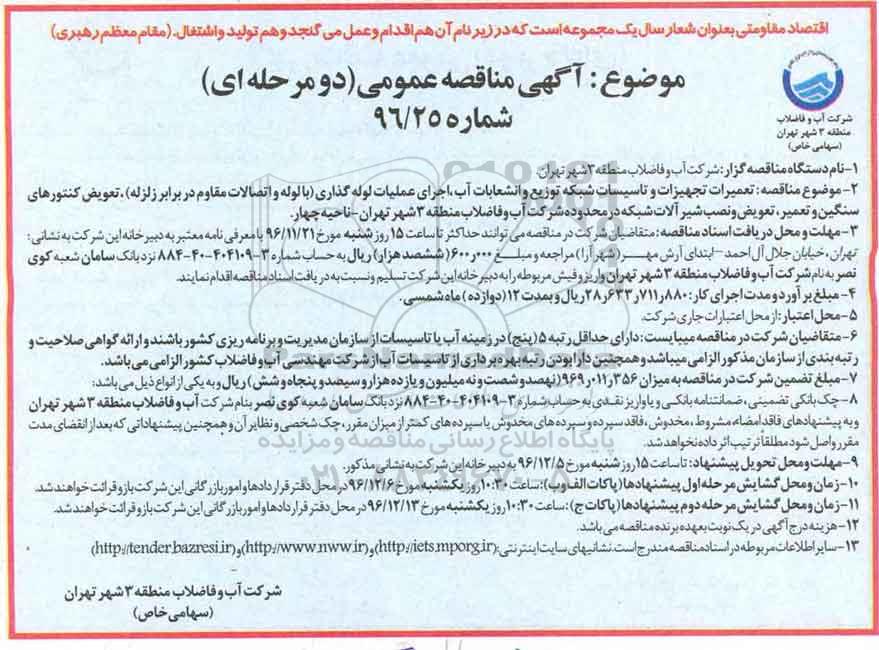 اقتصاد مقاومتی بعنوان شعار سال یک مجموعه است که در زیر نام آن هم اقدام و عمل می گنجد و هم تولید و اشتغال. (مقام معظم رهبری)
موضوع: آگهی مناقصه عمومی (دو مرحله ای)
شماره ۹۶/۲۵
شرکت آب و فاضلاب
منطقه ۳ شهر تهران
(سهامی خاص)
۱-نام دستگاه مناقصه گزار: شرکت آب و فاضلاب منطقه ۳ شهر تهران.
۲-موضوع مناقصه: تعمیرات تجهیزات و تاسیسات شبکه توزیع و انشعابات آب، اجرای عملیات لوله گذاری (با لوله و اتصالات مقاوم در برابر زلزله)، تعویض کنتورهای
سنگین و تعمیر، تعویض و نصب شیرآلات شبکه در محدوده شرکت آب و فاضلاب منطقه ۳ شهر تهران-ناحیه چهار.
۳-مهلت و محل دریافت اسناد مناقصه: متقاضیان شرکت در مناقصه می توانند حداکثر تا ساعت ۱۵ روز شنبه مورخ ۹۶/۱۱/۲۱ با معرفی نامه معتبر به دبیرخانه این شرکت به نشانی:
تهران، خیابان جلال آل احمد -ابتدای آرش مهر (شهرآرا) مراجعه و مبلغ ۶۰۰٫۰۰۰ (ششصد هزار) ریال به حساب شماره ۳-۴۰۴۱۰۹-۴۰-۸۸۴ نزد بانک سامان شعبه کوی
نصر به نام شرکت آب و فاضلاب منطقه ۳ شهر تهران واریز و فیش مربوطه را به دبیرخانه این شرکت تسلیم و نسبت به دریافت اسناد مناقصه اقدام نمایند.
۴-مبلغ برآورد و مدت اجرای کار: ۲۸٫۶۳۳٫۷۱۱٫۸۸۰ ریال و بمدت ۱۲ (دوازده) ماه شمسی.
۵-محل اعتبار: از محل اعتبارات جاری شرکت.
۶-متقاضیان شرکت در مناقصه میبایست: دارای حداقل رتبه ۵ (پنج) در زمینه آب یا تاسیسات از سازمان مدیریت و برنامه ریزی کشور باشند و ارائه گواهی صلاحیت و
رتبه بندی از سازمان مذکور الزامی میباشد و همچنین دارا بودن رتبه بهره برداری از تاسیسات آب از شرکت مهندسی آب و فاضلاب کشور الزامی می باشد.
۷-مبلغ تضمین شرکت در مناقصه به میزان ۹۶۹٫۰۱۱٫۳۵۶ (نهصد و شصت و نه میلیون و یازده هزار و سیصد و پنجاه و شش) ریال و به یکی از انواع ذیل می باشد:
۸-چک بانکی تضمینی، ضمانتنامه بانکی و یا واریز نقدی به حساب شماره ۳-۴۰۴۱۰۹-۴۰-۸۸۴ نزد بانک سامان شعبه کوی نصر بنام شرکت آب و فاضلاب منطقه ۳ شهر تهران
و به پیشنهادهای فاقد امضاء، مشروط، مخدوش، فاقد سپرده و سپرده های مخدوش یا سپرده های کمتر از میزان مقرر، چک شخصی و نظایر آن و همچنین پیشنهاداتی که بعد از انقضای مدت
مقرر واصل شود مطلقاً ترتیب اثر داده نخواهد شد.
۹-مهلت و محل تحویل پیشنهاد: تا ساعت ۱۵ روز شنبه مورخ ۹۶/۱۲/۵ به دبیرخانه این شرکت به نشانی مذکور.
۱۰-زمان و محل گشایش مرحله اول پیشنهادها (پاکات الف و ب): ساعت ۱۰:۳۰ روز یکشنبه مورخ ۹۶/۱۲/۶ در محل دفتر قراردادها و امور بازرگانی این شرکت باز و قرائت خواهند شد.
۱۱-زمان و محل گشایش مرحله دوم پیشنهادها (پاکات ج): ساعت ۱۰:۳۰ روز یکشنبه مورخ ۹۶/۱۲/۱۳ در محل دفتر قراردادها و امور بازرگانی این شرکت باز و قرائت خواهند شد.
۱۲-هزینه درج آگهی در یک نوبت بعهده برنده مناقصه می باشد.
۱۳-سایر اطلاعات مربوطه در اسناد مناقصه مندرج است. نشانیهای سایت اینترنتی: (http://iets.mporg.ir) و (http://www.nww.ir) و (http://tender.bazresi.ir)
شرکت آب و فاضلاب منطقه ۳ شهر تهران
(سهامی خاص)
پایگاه اطلاع رسانی مناقصه و مزایده